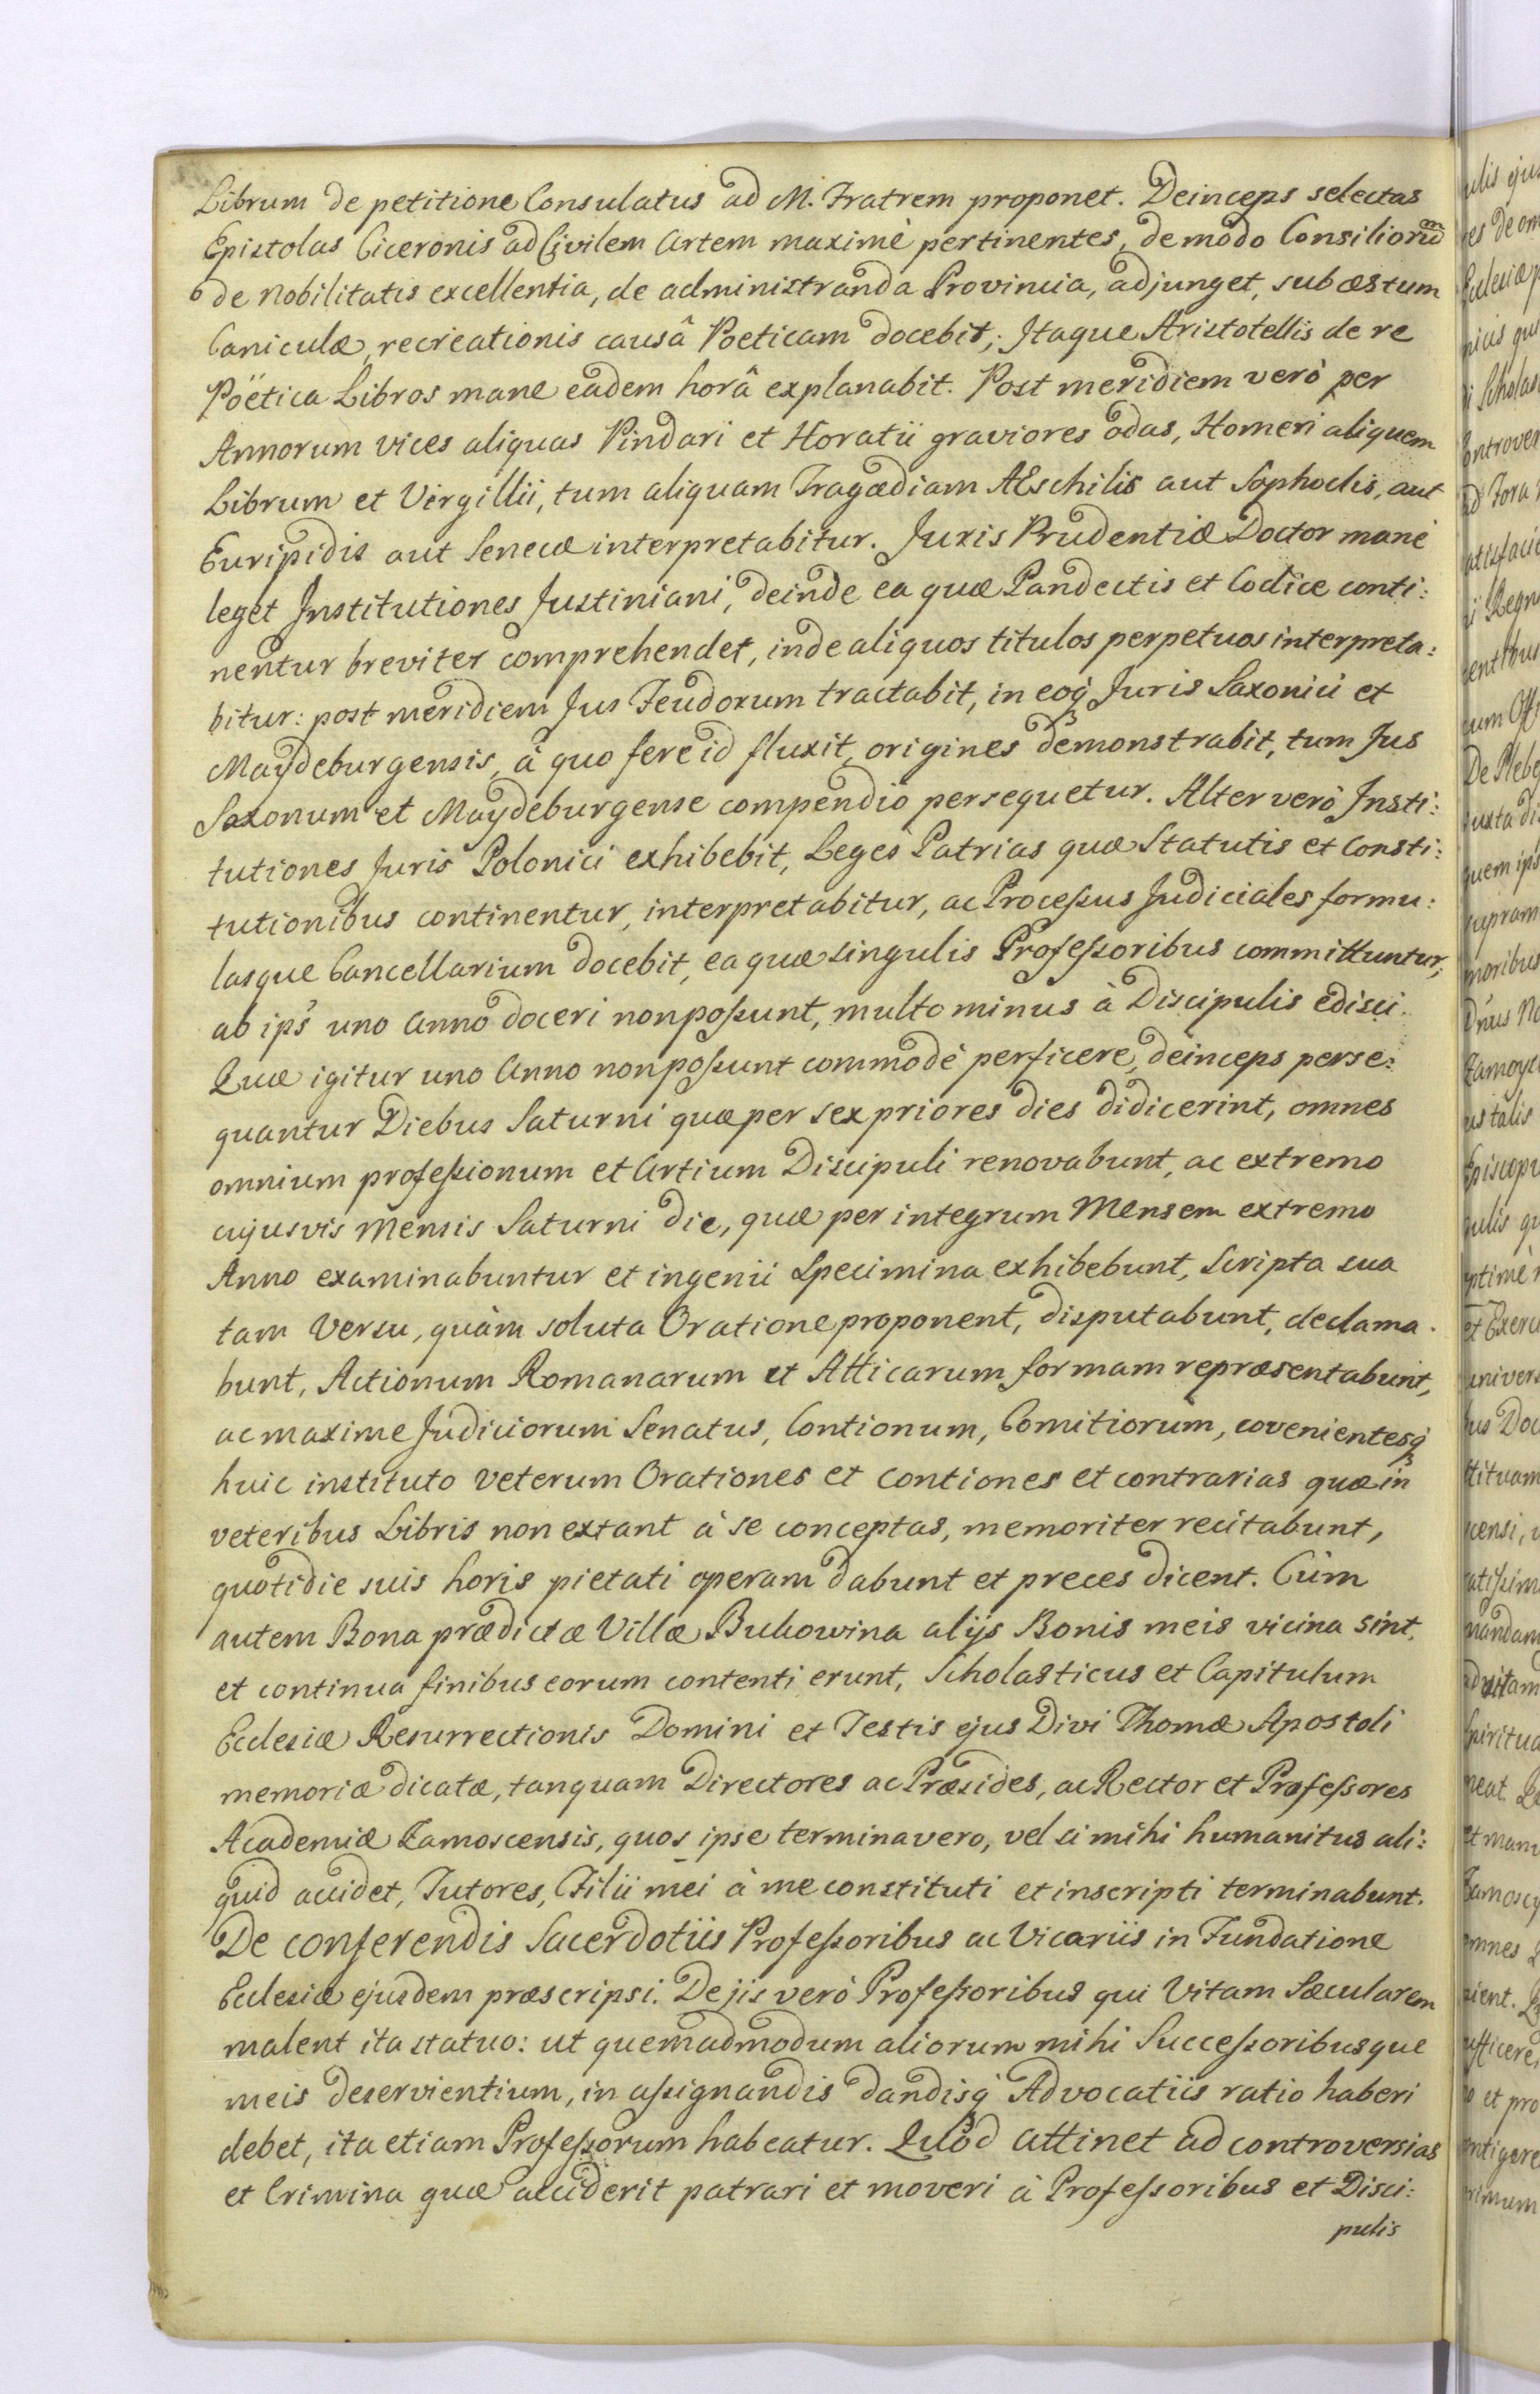 Librum de petitione Consulatus ad M. Fratrem proponet. Deinceps selectas
Epistolas Ciceronis ad Civilem Artem maximè pertinentes, de modo Consiliorũm
de nobilitatis excellentia, de administranda Provincia, adjunget, sub æstum
Caniculæ, recreationis causâ Poeticam docebit; Itaque Aristotellis de re
Pöetica Libros mane eadem horâ explanabit. Post meridiem verò per
Annorum vices aliquas Pindari et Horatii graviores odas, Homeri aliquem
Librum et Virgillii, tum aliquam Tragædiam AEschilis aut Sophoclis, aut
Euripidis aut Senecæ interpretabitur. Juris Prudentiæ Doctor manè
leget Institutiones Justiniani, deinde ea quæ Pandectis et Codice conti:
nentur breviter comprehendet, inde aliquos titulos perpetuos interpreta:
bitur: post meridiem Jus Feudorum tractabit, in eoq̨ Juris Saxonici et
Maydeburgensis, à quo fere id fluxit, origines demonstrabit, tum Jus
Saxonum et Maydeburgense compendio persequetur. Alter verò Insti:
tutiones Juris Polonici exhibebit, Leges Patrias quæ Statutis et Consti:
tutionibus continentur, interpretabitur, ac Proceſsus Judiciales formu:
lasque Cancellarium docebit, ea quæ singulis Profeſsoribus committuntur,
ab ips̃ uno Anno doceri non poſsunt, multo minus à Discipulis edisci.
Quæ igitur uno Anno non poſsunt commodè perficere, deinceps perse:
quantur Diebus Saturni quæ per sex priores dies didicerint, omnes
omnium profeſsionum et Artium Discipuli renovabunt, ac extremo
cujusvis Mensis Saturni die, quæ per integrum Mensem extremo
Anno examinabuntur et ingenii specimina exhibebunt, Scripta sua
tam Versu, quàm soluta Oratione proponent, disputabunt, declama.
bunt, Actionum Romanarum et Atticarum formam repræsentabunt,
ac maxime Judiciorum Senatus, Contionum, Comitiorum, covenientesq̨
huic instituto veterum Orationes et contiones et contrarias quæ in
veteribus Libris non extant à se conceptas, memoriter recitabunt,
quotidie suis horis pietati operam dabunt et preces dicent. Cùm
autem Bona prædictæ Villæ Bukowina alijs Bonis meis vicina sint,
et continua finibus eorum contenti erunt, Scholasticus et Capitulum
Ecclesiæ Resurrectionis Domini et Testis ejus Divi Thomæ Apostoli
memoriæ dicatæ, tanquam Directores ac Præsides, ac Rector et Profeſsores
Academiæ Zamoscensis, quos ipse terminavero, vel si mihi humanitus ali:
quid accidet, Tutores, Filii mei à me constituti et inscripti terminabunt.
De conferendis Sacerdotiis Profeſsoribus ac Vicariis in Fundatione
Ecclesiæ ejusdem præscripsi. De jis verò Profeſsoribus qui Vitam Sæcularem
malent ita statuo: ut quemadmodum aliorum mihi Succeſsoribusque
meis deservientium, in aſsignandis dandisq̨ Advocatiis ratio haberi
debet, ita etiam Profeſsorum habeatur. Quod attinet ad controversias
et Crimina quæ acciderit patrari et moveri à Profeſsoribus et Disci:
pulis